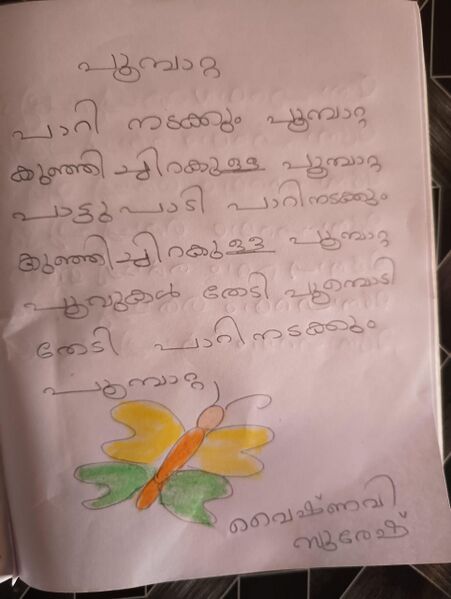 പൂമ്പാറ്റ
പാറി നടക്കും പൂമ്പാറ്റ
കുഞ്ഞിച്ചിറകുള്ള പൂമ്പാറ്റ
പാട്ടുപാടി പാറിനടക്കും
കുഞ്ഞിച്ചിറകുള്ള പൂമ്പാറ്റ
പൂവുകൾ തേടി പൂമ്പൊടി
തേടി പാറിനടക്കും
പൂമ്പാറ്റ
വൈഷ്ണവി
സുരേഷ്